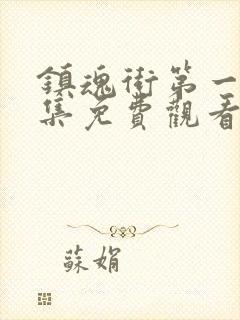 鎮魂街第一
集免費觀看
蘇娟